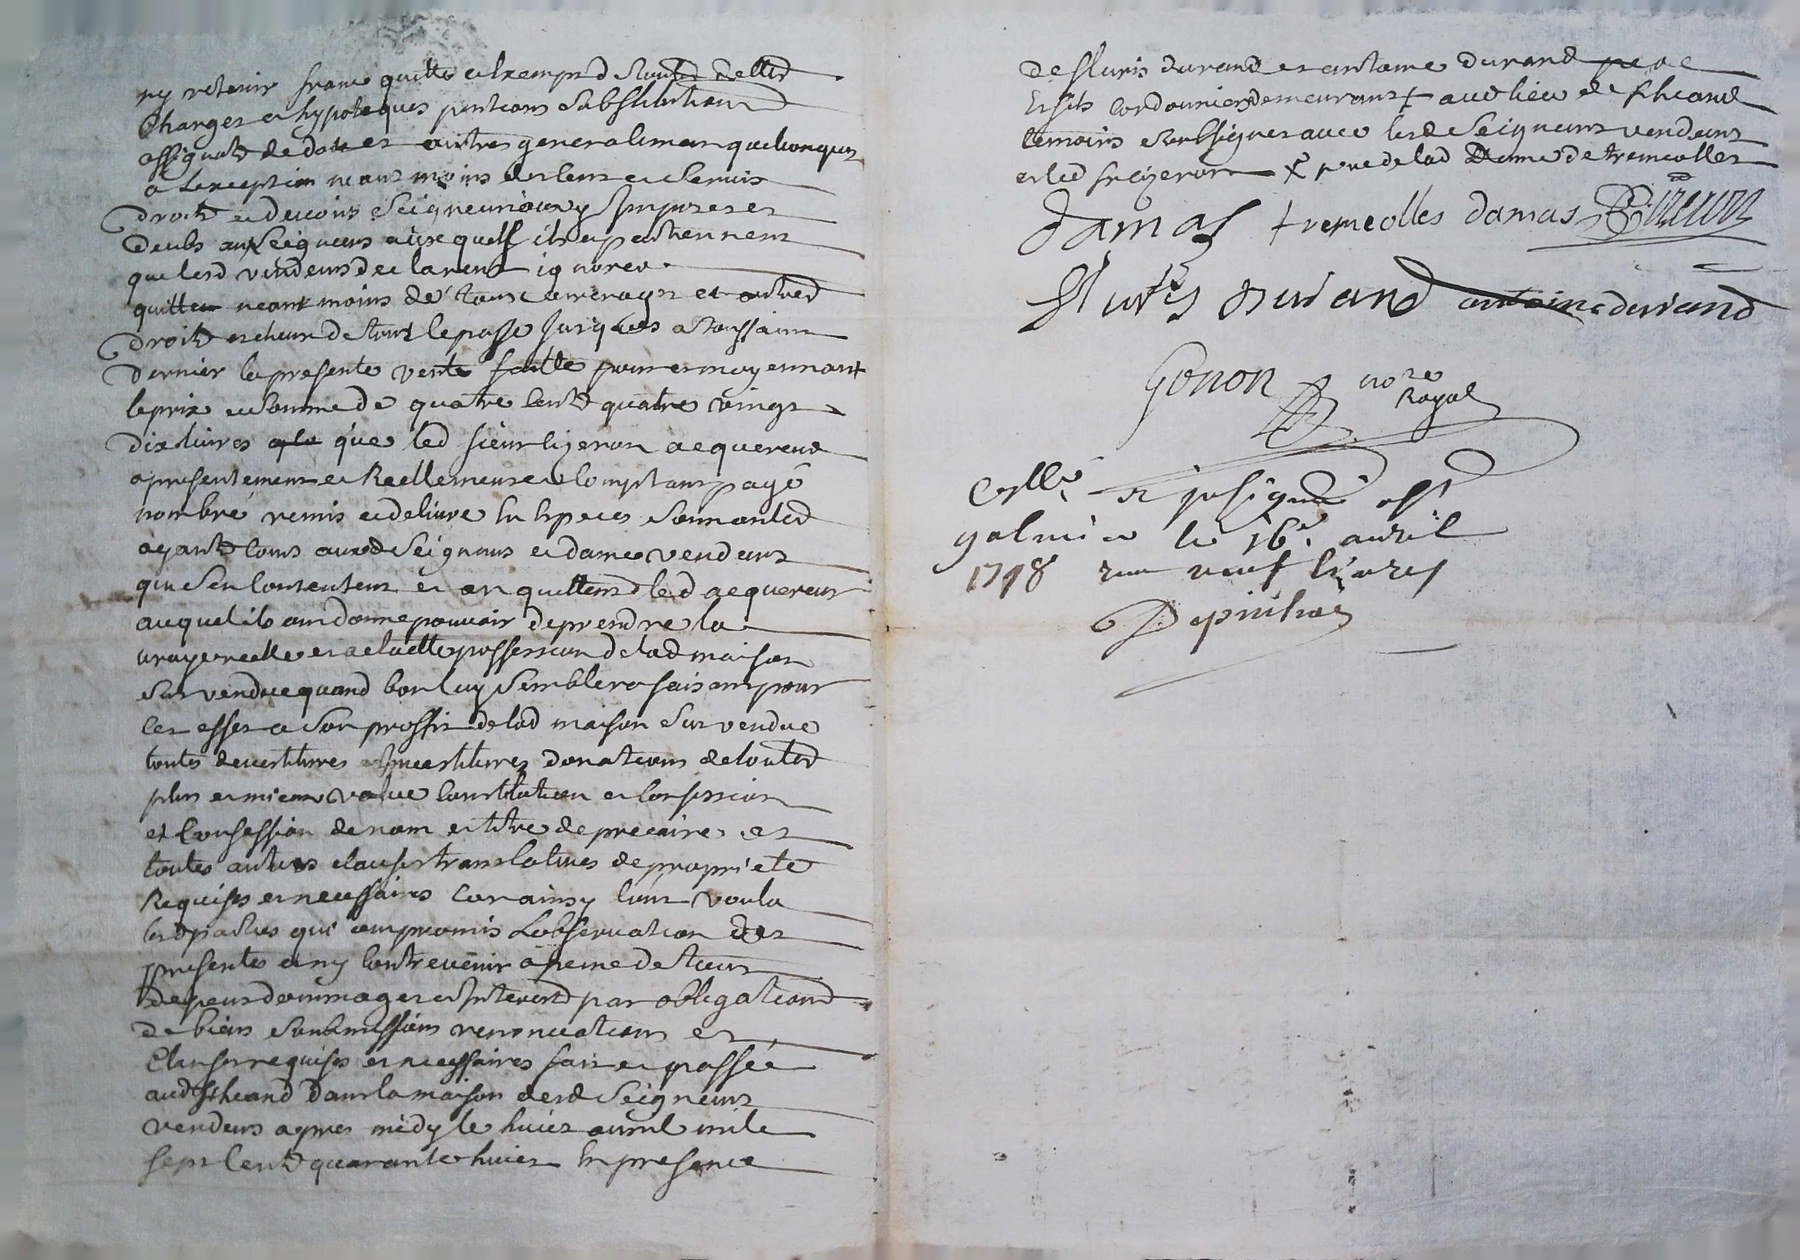 ny retenir franc quitte et exempt de toutes dettes
charges et hypoteques pentions substitutions
assignats de dotes et autres generalement quelconques
a l'exception neant moins des cens et servis
droits et devoirs seigneuriaux y imposes et
deubs aux seigneurs auxquels ils apartiennent
que lesd vendeurs declarent ignorer
quitte neant moins de tous arrerages et autres
droits echeus de tout le passe jusques a toussaint
dernier la presente vente faitte pour et moyennant
le prix et somme de quatre cents quatre vingt
dix livres que led sieur ligeron acquereur
a presentement et Reellement et comptant payé
nombré remis et delivre en especes sonnantes
ayants cours auxd seigneurs et dame vendeurs
qui s'en contentent et en quittent led acquereur
auquel ils ont donne pouvoir de prendre la
vraye reelle et actuelle possession de lad maison
sus vendue quand bon luy semblera faisant pour
cet effet a son proffit de lad maison sus vendue
toutes devestitures investitures donations de toutes
plus et mieux value constitution et
et Confession de nom et titre de precaire et
toutes autres clauses translatives de propriete
Requises et necessaires car ainsy l'ont voulu
lesd parties qui ont promis l'observation des
presentes et ny contrevenir a peine de tous
depens dommages et interests par obligations
de biens soubmissions renonciations et
clauses requises et necessaires fait et passée
aud st heand dans la maison desd seigneurs
vendeurs apres midy le huict avril mile
sept cents quarante huict en presence
de fluris durand et antoine durand pere
et fils cordonniers demeurant aud lieu de st heand
temoins soubsignes avec lesd seigneurs vendeurs
et led sr ligeron x pere de lad Dame de tremeolles
damas tremeolles damas
fluris durand antoine durand
Gonon nore
Royal
Collé et insigné a st
galmier le 16e avril
1748 reçu neuf livres
Depinhac